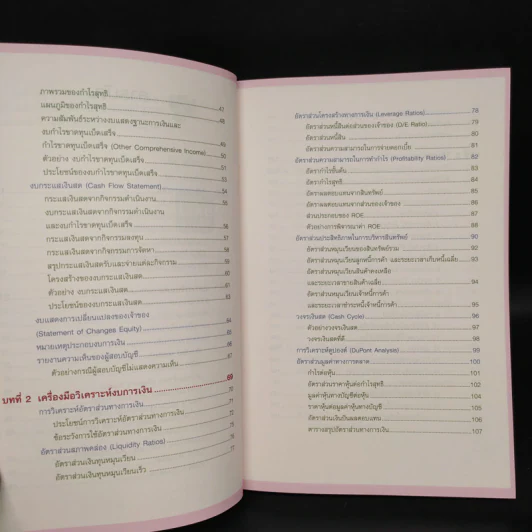 ภาพรวมของกำไรสุทธิ
แผนภูมิของกำไรสุทธิ 47
ความสัมพันธ์ระหว่างงบแสดงฐานะการเงินและ 48
งบกำไรขาดทุนเบ็ดเสร็จ
กำไรขาดทุนเบ็ดเสร็จ (Other Comprehensive Income) 49
ตัวอย่าง งบกำไรขาดทุนเบ็ดเสร็จ 50
ประโยชน์ของงบกำไรขาดทุนเบ็ดเสร็จ 51
งบกระแสเงินสด (Cash Flow Statement) 53
กระแสเงินสดจากกิจกรรมดำเนินงาน 54
งบกระแสเงินสดจากกิจกรรมดำเนินงาน 55
และงบกำไรขาดทุนเบ็ดเสร็จ
กระแสเงินสดจากกิจกรรมลงทุน 56
กระแสเงินสดจากกิจกรรมการจัดหา 57
สรุปกระแสเงินสดรับและจ่ายแต่ละกิจกรรม 58
โครงสร้างของงบกระแสเงินสด 59
ตัวอย่าง งบกระแสเงินสด 60
ประโยชน์ของงบกระแสเงินสด 61
งบแสดงการเปลี่ยนแปลงของเจ้าของ 63
(Statement of Changes Equity) 64
หมายเหตุประกอบงบการเงิน 65
รายงานความเห็นของผู้สอบบัญชี 66
ตัวอย่างกรณีผู้สอบบัญชีไม่แสดงความเห็น 67
บทที่ 2 เครื่องมือวิเคราะห์งบการเงิน 69
การวิเคราะห์อัตราส่วนทางการเงิน 70
ประโยชน์การวิเคราะห์อัตราส่วนทางการเงิน 71
ข้อระวังการใช้อัตราส่วนทางการเงิน 72
อัตราส่วนสภาพคล่อง (Liquidity Ratios) 75
อัตราส่วนเงินทุนหมุนเวียน 76
อัตราส่วนเงินทุนหมุนเวียนเร็ว 77
อัตราส่วนโครงสร้างทางการเงิน (Leverage Ratios) 78
อัตราส่วนหนี้สินต่อส่วนของเจ้าของ (D/E Ratio) 79
อัตราส่วนหนี้สิน 80
อัตราส่วนความสามารถในการจ่ายดอกเบี้ย 81
อัตราส่วนความสามารถในการทำกำไร (Profitability Ratios) 82
อัตรากำไรขั้นต้น 83
อัตรากำไรสุทธิ 84
อัตราผลตอบแทนจากสินทรัพย์ 85
อัตราผลตอบแทนจากส่วนของเจ้าของ 86
ส่วนประกอบของ ROE 87
ตัวอย่างการพิจารณาค่า ROE 88
อัตราส่วนประสิทธิภาพในการบริหารสินทรัพย์ 90
อัตราส่วนหมุนเวียนของสินทรัพย์รวม 92
อัตราส่วนหมุนเวียนลูกหนี้การค้า และระยะเวลาเก็บหนี้เฉลี่ย 93
อัตราส่วนหมุนเวียนสินค้าคงเหลือ
และระยะเวลาขายสินค้าเฉลี่ย 94
อัตราส่วนหมุนเวียนเจ้าหนี้การค้า
และระยะเวลาชำระหนี้เจ้าหนี้การค้า 95
วงจรเงินสด (Cash Cycle) 96
ตัวอย่างวงจรเงินสด 97
วงจรเงินสดที่ดี 98
การวิเคราะห์ดูปองต์ (DuPont Analysis) 99
อัตราส่วนมูลค่าทางการตลาด 100
กำไรต่อหุ้น 101
อัตราส่วนราคาหุ้นต่อกำไรสุทธิ 102
มูลค่าหุ้นทางบัญชีต่อหุ้น 103
ราคาหุ้นต่อมูลค่าหุ้นทางบัญชี 104
อัตราส่วนเงินปันผลตอบแทน 105
ตารางสรุปอัตราส่วนทางการเงิน 107